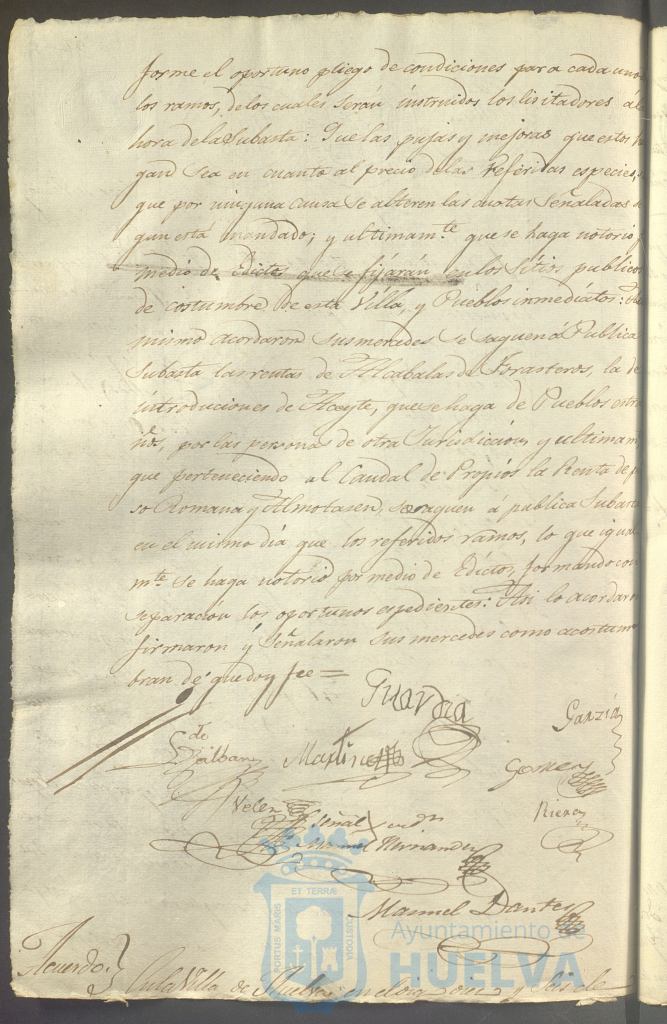 forme el oportuno pliego de condiciones para cada uno
los ramos, de los cuales serán instruidos los lisitadores ál
hora dela Subasta: Que las pujas y mejoras que estos h
gand sea en cuanto al precio de las referidas especies,
que por ninguna causa se alteren las cuotas señaladas s
gun está mandado; y ultimamte que se haga notorio p
medio de Edictos que se fijarán en los Sítios publicos
de costumbre de esta Villa, y Pueblos inmediatos:
mismo acordaron sus mercedes se saquen á Publica
Subasta las rentas de Alcabalas de Forasteros, la de
introduciones de Aceyte, que se haga de Pueblos estra
ños, por las personas de otra Jurisdiccion, y ultimam
que perteneciendo al Caudal de Propios la Renta de p
so Romana y Almotasen, se saquen á publica Subasta
en el mismo dia que los referidos ramos, lo que igual
mte se haga notorio por medio de Edictos, formando con
separacion los oportunos espedientes: Asi lo acordaron
firmaron y señalaron sus mercedes como acostum
bran de que doy fee=
Guardia
Garzía
Martinez
Gomez
Velez
Riero
Señal
Manuel Hernandez
Manuel Dantes
Acuerdo.
En la Villa de Huelva en el dia dies y seis de
ET TERRÆ
PORTUS MARIS
CUSTODIA
Ayuntamiento de
HUELVA